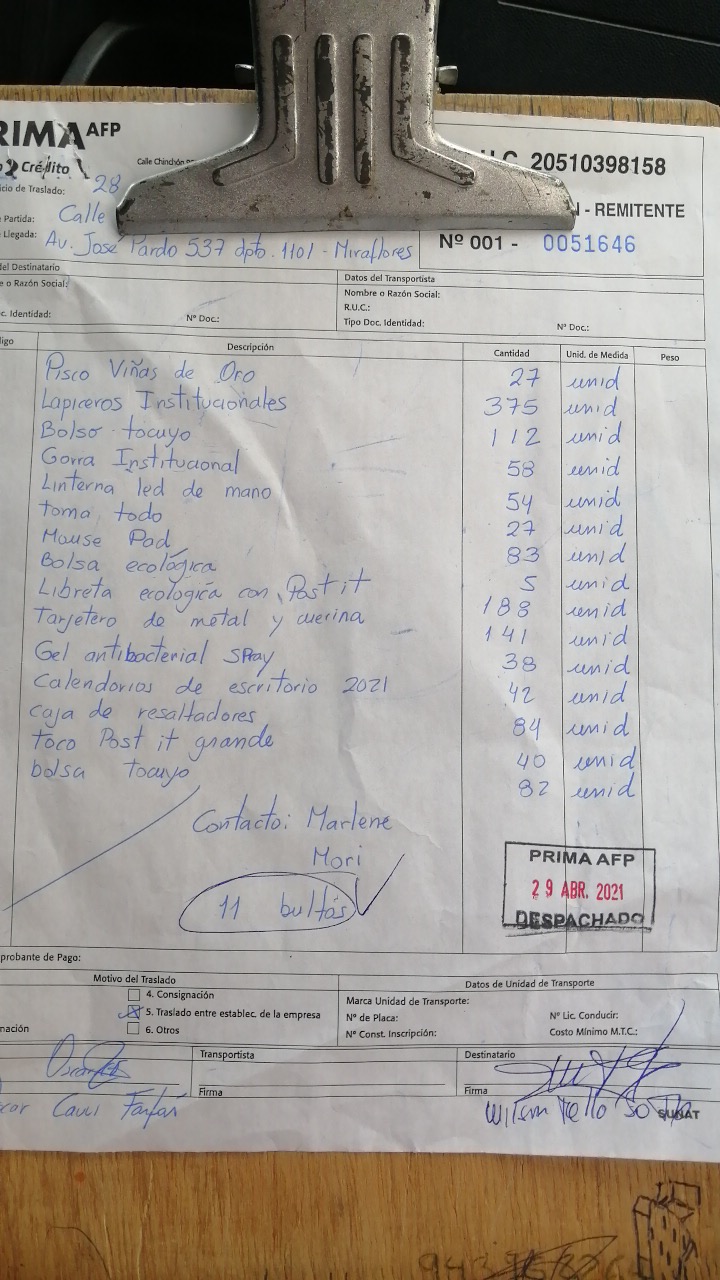 RIMA AFP
Crédito
Calle Chinchón
R.U.C. 20510398158
icio de Traslado: 28
N - REMITENTE
Partida: Calle
Llegada: Av. José Pardo 537 dpto. 1101 - Miraflores
Nº 001 - 0051646
del Destinatario
Datos del Transportista
e o Razón Social:
Nombre o Razón Social:
R.U.C.:
c. Identidad: Nº Doc.:
Tipo Doc. Identidad: Nº Doc.:
digo Descripción Cantidad Unid. de Medida Peso
Pisco Viñas de Oro 27 unid
Lapiceros Institucionales 375 unid
Bolso tocuyo 112 unid
Gorra Institucional 58 unid
Linterna led de mano 54 unid
toma todo 27 unid
Mouse Pad 83 unid
Bolsa ecológica 5 unid
Libreta ecologica con Post it 188 unid
Tarjetero de metal y cuerina 141 unid
Gel antibacterial SPray 38 unid
Calendarios de escritorio 2021 42 unid
caja de resaltadores 84 unid
toco Post it grande 40 unid
bolsa tocuyo 82 unid
Contacto: Marlene
Mori
11 bultos
PRIMA AFP
29 ABR. 2021
DESPACHADO
probante de Pago:
Motivo del Traslado
Datos de Unidad de Transporte
4. Consignación
Marca Unidad de Transporte:
5. Traslado entre establec. de la empresa
Nº de Placa: Nº Lic. Conducir:
nación 6. Otros
Nº Const. Inscripción: Costo Mínimo M.T.C.:
Transportista
Destinatario
Firma
Firma
car Cauri Farfán
SUNAT